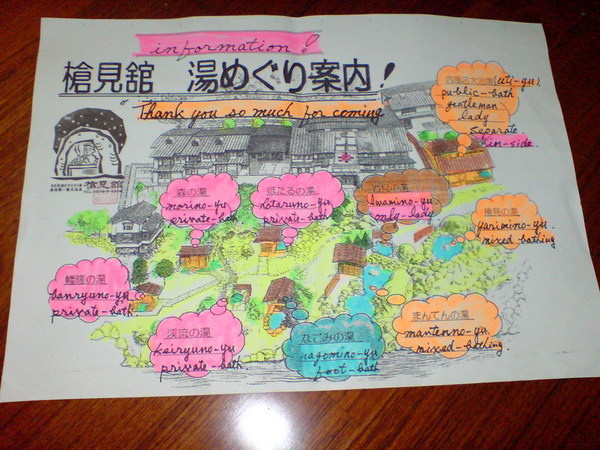 information!
槍見舘 湯めぐり案内!
Thank you so much for coming
(uti-yu)
public-bath
gentleman
lady
separate
in-side.
槍見舘
森の湯
morino-yu
private-bath
ほたるの湯
hotaruno-yu
private-bath
岩見の湯
Iwamino-yu
only-lady
槍見の湯
yarimino-yu
mixed bathing
播隆の湯
banryuno-yu
private-bath.
渓流の湯
keiryuno-yu
private-bath
なごみの湯
nagomino-yu
foot-bath
まんてんの湯
mantenno-yu
mixed-bathing.